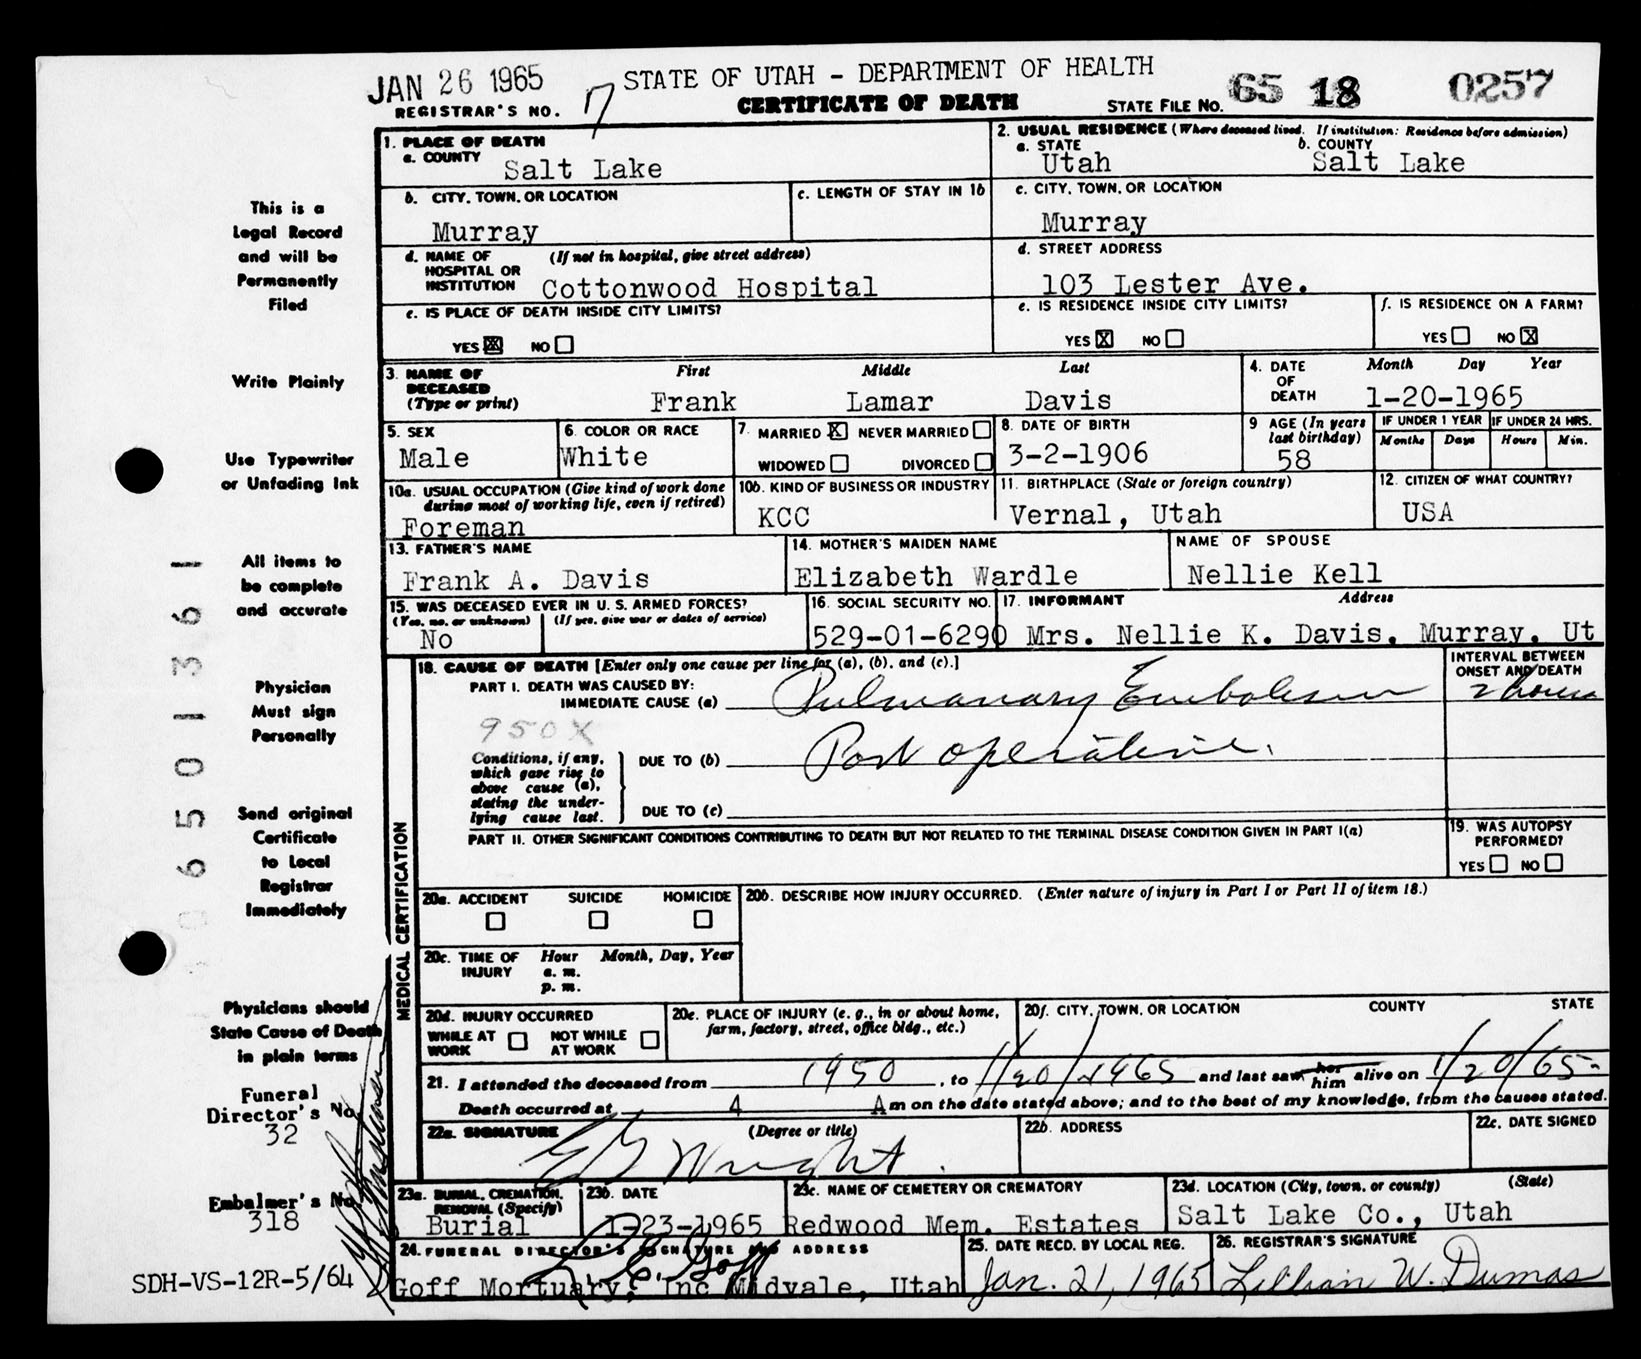 JAN 26 1965 STATE OF UTAH - DEPARTMENT OF HEALTH
REGISTRAR'S NO. 17 CERTIFICATE OF DEATH STATE FILE NO. 65 18 0257
1. PLACE OF DEATH
a. COUNTY Salt Lake
2. USUAL RESIDENCE (Where deceased lived. If institution: Residence before admission)
a. STATE Utah b. COUNTY Salt Lake
b. CITY, TOWN, OR LOCATION Murray
c. LENGTH OF STAY IN 1b
c. CITY, TOWN, OR LOCATION Murray
d. NAME OF HOSPITAL OR INSTITUTION (If not in hospital, give street address) Cottonwood Hospital
d. STREET ADDRESS 103 Lester Ave.
e. IS PLACE OF DEATH INSIDE CITY LIMITS?
YES ☒ NO ☐
e. IS RESIDENCE INSIDE CITY LIMITS?
YES ☒ NO ☐
f. IS RESIDENCE ON A FARM?
YES ☐ NO ☒
3. NAME OF DECEASED (Type or print) First Middle Last
Frank Lamar Davis
4. DATE OF DEATH Month Day Year
1-20-1965
5. SEX Male
6. COLOR OR RACE White
7. MARRIED ☒ NEVER MARRIED ☐
WIDOWED ☐ DIVORCED ☐
8. DATE OF BIRTH 3-2-1906
9 AGE (In years last birthday) 58
IF UNDER 1 YEAR Months Days
IF UNDER 24 HRS. Hours Min.
10a. USUAL OCCUPATION (Give kind of work done during most of working life, even if retired)
Foreman
10b. KIND OF BUSINESS OR INDUSTRY KCC
11. BIRTHPLACE (State or foreign country) Vernal, Utah
12. CITIZEN OF WHAT COUNTRY? USA
13. FATHER'S NAME Frank A. Davis
14. MOTHER'S MAIDEN NAME Elizabeth Wardle
NAME OF SPOUSE Nellie Kell
15. WAS DECEASED EVER IN U. S. ARMED FORCES?
(Yes, no, or unknown) (If yes, give war or dates of service)
No
16. SOCIAL SECURITY NO. 529-01-6290
17. INFORMANT Address
Mrs. Nellie K. Davis, Murray, Ut
MEDICAL CERTIFICATION
18. CAUSE OF DEATH [Enter only one cause per line for (a), (b), and (c).]
INTERVAL BETWEEN ONSET AND DEATH
PART I. DEATH WAS CAUSED BY:
IMMEDIATE CAUSE (a) Pulmonary Embolism 2 hours
950X
Conditions, if any, which gave rise to above cause (a), stating the underlying cause last.
DUE TO (b) Post operative.
DUE TO (c)
PART II. OTHER SIGNIFICANT CONDITIONS CONTRIBUTING TO DEATH BUT NOT RELATED TO THE TERMINAL DISEASE CONDITION GIVEN IN PART I(a)
19. WAS AUTOPSY PERFORMED?
YES ☐ NO ☐
20a. ACCIDENT SUICIDE HOMICIDE
☐ ☐ ☐
20b. DESCRIBE HOW INJURY OCCURRED. (Enter nature of injury in Part I or Part II of item 18.)
20c. TIME OF INJURY Hour Month, Day, Year
a. m.
p. m.
20d. INJURY OCCURRED
WHILE AT WORK ☐ NOT WHILE AT WORK ☐
20e. PLACE OF INJURY (e. g., in or about home, farm, factory, street, office bldg., etc.)
20f. CITY, TOWN, OR LOCATION COUNTY STATE
21. I attended the deceased from 1950, to 1/20/1965 and last saw her him alive on 1/20/65-
Death occurred at 4 A m on the date stated above; and to the best of my knowledge, from the causes stated.
22a. SIGNATURE (Degree or title)
Wright
22b. ADDRESS
22c. DATE SIGNED
23a. BURIAL, CREMATION, REMOVAL (Specify) Burial
23b. DATE 1-23-1965
23c. NAME OF CEMETERY OR CREMATORY Redwood Mem. Estates
23d. LOCATION (City, town, or county) (State)
Salt Lake Co., Utah
24. FUNERAL DIRECTOR'S SIGNATURE AND ADDRESS
Goff Mortuary, Inc Midvale, Utah
25. DATE RECD. BY LOCAL REG. Jan. 21, 1965
26. REGISTRAR'S SIGNATURE Lillian W. Dumas
This is a
Legal Record
and will be
Permanently
Filed
Write Plainly
Use Typewriter
or Unfading Ink
All items to
be complete
and accurate
Physician
Must sign
Personally
Send original
Certificate
to Local
Registrar
Immediately
Physicians should
State Cause of Death
in plain terms
Funeral
Director's No.
32
Embalmer's No.
318
SDH-VS-12R-5/64
6501361